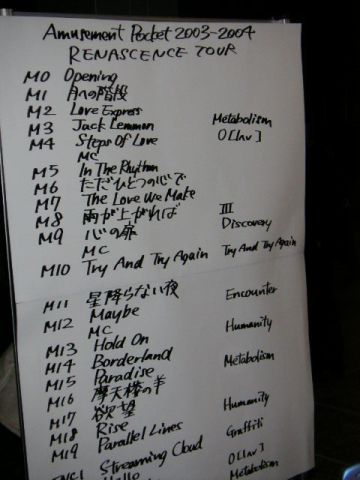 Amusement Pocket 2003-2004
RENASCENCE TOUR
M0 Opening
M1 月への階段
M2 Love Express
M3 Jack Lemmon Metabolism
M4 Steps Of Love O[lnv]
MC
M5 In The Rhythm
M6 ただひとつの心で
M7 The Love We Make
M8 雨が上がれば III
M9 心の扉 Discovery
MC
M10 Try And Try Again Try And Try Again
M11 星降らない夜 Encounter
M12 Maybe
MC Humanity
M13 Hold On
M14 Borderland Metabolism
M15 Paradise
M16 摩天楼の羊
M17 欲望 Humanity
M18 Rise
M19 Parallel Lines Graffiti
ENC1 Streaming Cloud O[lnv]
Hello Metabolism